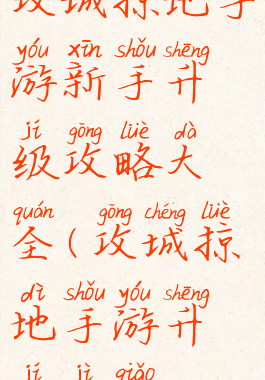 攻城掠地手
yóu xīn shǒu shēng
游新手升
jí gōng lüè dà
级攻略大
quán gōng chéng lüè
全(攻城掠
dì shǒu yóu shēng
地手游升
jí jì qiǎo